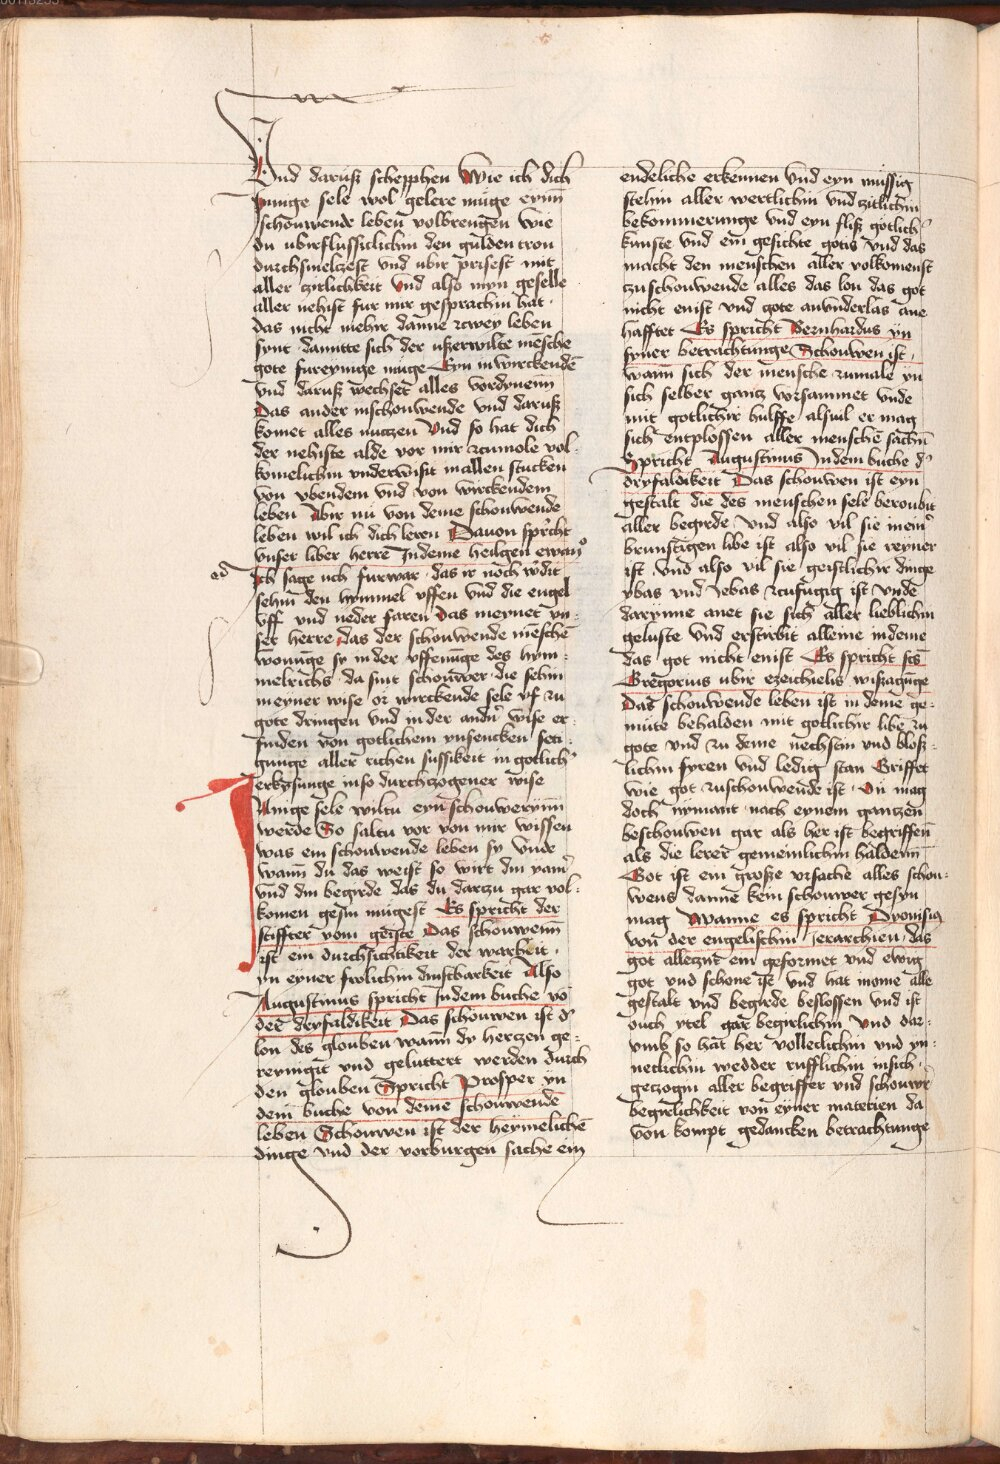 Vnd daruß schepphen Wie ich dich
Jnnige sele wol gelere müge eynn
schouwende leben volbrengen wie
du ubirflussiclichin den gulden tron
durchsmelczest vnd ubir prisest mit
aller zirlichkeit vnd also myn geselle
aller nehist fur mir gesprachin hat ·
das nicht mehir danne zcwey leben
synt · damitte sich der ußerwilte mēsche
gote fureynige müge Eyn inwirckendē
vnd daruß wechset alles vordynenn
Das ander inschouwende vnd daruß
komet alles nutzen Vnd so hat dich
der nehiste alde vor mir zcumole vol-
komelichin vnderwisit in allen stucken
von vbendem vnd von wirckendem
leben Abir nü von deme schouwende
leben wil ich dich leren Dauon spricht
vnser liber herre Jndeme heilgen ewan°
Jch sage uch furwar · das ir noch w'dit
sehin den hymmel uffen vnd die engel
vff vnd neder faren Das meynet vn-
ser herre das der schouwende mēsche
wonūge sy in der uffenūge des hym-
melrichs · da sint schouwer · die sehin
meyner wise or wirckende sele vf zu
gote dringen vnd in der andn' wise er-
finden von gotlichem ynsencken seti-
gunge aller richen sussikeit in gotlich'
erkysunge inso durchzogener wise
Jnnige sele wiltu eyn schouwerynn
werde So saltu vor von mir wissen
was ein schouwende leben sy vnde
wann du das weist so wirt din yam'
vnd din begirde das du darczu gar vol-
komen gesin mügest Es spricht der
stiffter vom geiste Das schouwenn
ist ein durchsichtikeit der warheit ·
yn eyner frolichin dinstbarkeit Also
Augustinus spricht Jndem buche vō
der dryfaldikeit Das schouwen ist d'
lon des glouben wann dy hertzen ge-
reynigit vnd geluttert werden durch
den glouben Spricht Prosper yn
dem buche von deme schouwende
leben Schouwen ist der heymelichē
dinge vnd der vorburgen sache ein
endeliche erkennen vnd eyn mussig
stehin aller wertlichin vnd zitlichin
bekommerunge vnd eyn fliß gotlich'
kunste vnd ein gesichte gotis vnd das
macht den menschen aller volkomenst
czuschouwende alles das lon das got
nicht enist vnd gote anvnderlas ane
hafftet Es spricht Bernhardus yn
syner betrachtunge Schouwen ist ·
wann sich der mensche zumale yn
sich selber gantz vorsammet vnde
mit gotlichir hulffe alsuil er mag
sich entplossen aller menschē sachin
Spricht Augustinus Jndem buche d'
dryfaldikeit Das schouwen ist eyn
gestalt die des menschen sele beroubit
aller begirde vnd also vil sie inein'
brunstigen libe ist also vil sie reyner
ist · vnd also vil sie geistlichir dinge
ybas vnd yebas zcufugig ist vnde
darynne anet sie sich aller lieblichin
geluste vnd erstirbit alleine indeme
das got nicht enist Es spricht scs
Gregorius ubir ezeichielis wißagūge
Das schouwende leben ist in deme ge-
mute behalden mit gotlichir libe zu
gote vnd zu deme nechsten vnd bloß-
lichin fyren vnd ledig stan Griffet
wie got zuschouwende ist · Ou mag
doch nymant nach eynem gantzen
beschouwen gar als her ist begriffenn
als die lerer gemeinlichin haldenn
Got ist ein große vrsache alles schou-
wens danne kein schouwer gesyn
mag Wanne es spricht Dyonisius
von der engelischin Jerarchien · das
got alleczit ein geformet vnd ewig
got vnd schone ist · vnd hat inome alle
gestalt vnd begirde beslossen vnd ist
ouch ytel gar begirlichin vnd dar-
vmb so hat her volleclichin vnd yn-
neclichin wedder rufflichin insich ·
getzogin aller begriffer vnd schouw'
begirlichkeit von eyner materien da
von kompt gedancken betrachtunge